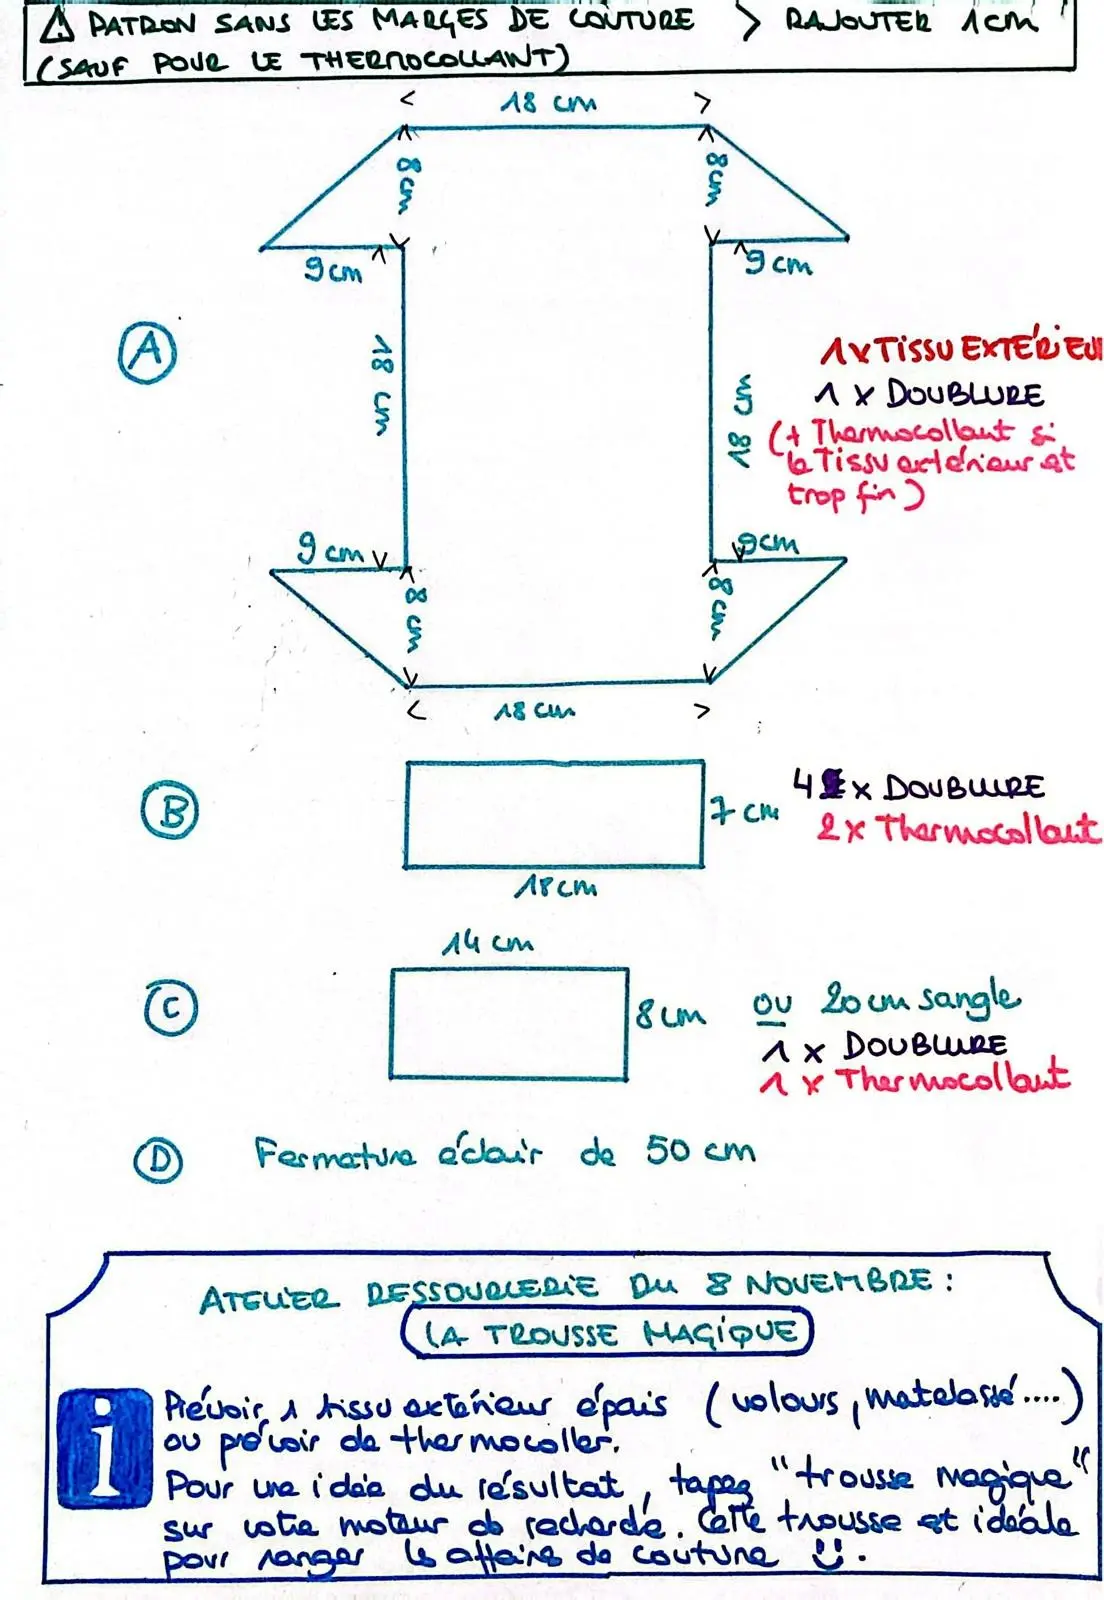 ⚠ PATRON SANS LES MARGES DE COUTURE > RAJOUTER 1cm !
(SAUF POUR LE THERMOCOLLANT)
< 18 cm >
8 cm
8 cm
9 cm
9 cm
A
18 cm
18 cm
1 x TISSU EXTÉRIEU
1 x DOUBLURE
(+ Thermocollant si
le Tissu extérieur est
trop fin)
9 cm
9cm
8 cm
8 cm
< 18 cm >
B
7 cm
18cm
4 x DOUBLURE
2x Thermocollant
14 cm
C
8 cm
ou 20 cm sangle
1 x DOUBLURE
1 x Thermocollant
D Fermeture éclair de 50 cm
ATELIER RESSOURCERIE DU 8 NOVEMBRE :
LA TROUSSE MAGIQUE
i
Prévoir 1 tissu extérieur épais (velours, matelassé....)
ou prévoir de thermocoller.
Pour une idée du résultat, tapez "trousse magique"
sur votre moteur de recherche. Cette trousse est idéale
pour ranger les affaires de couture :).